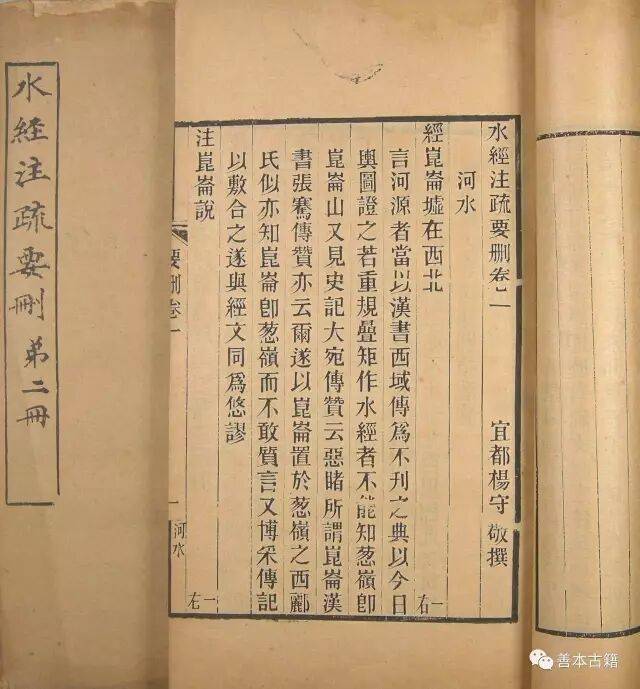 水經注疏要刪卷一 宜都楊守敬撰
河水
經崑崙墟在西北
言河源者當以漢書西域傳爲不刊之典以今日
輿圖證之若重規疊矩作水經者不能知葱嶺卽
崑崙山又見史記大宛傳贊云惡睹所謂崑崙漢
書張騫傳贊亦云爾遂以崑崙置於葱嶺之西酈
氏似亦知崑崙卽葱嶺而不敢質言又博采傳記
以敷合之遂與經文同爲悠謬
注崑崙說
一右
一左
要刪卷一 一 河水
水經注疏要刪 弟二冊
善本古籍